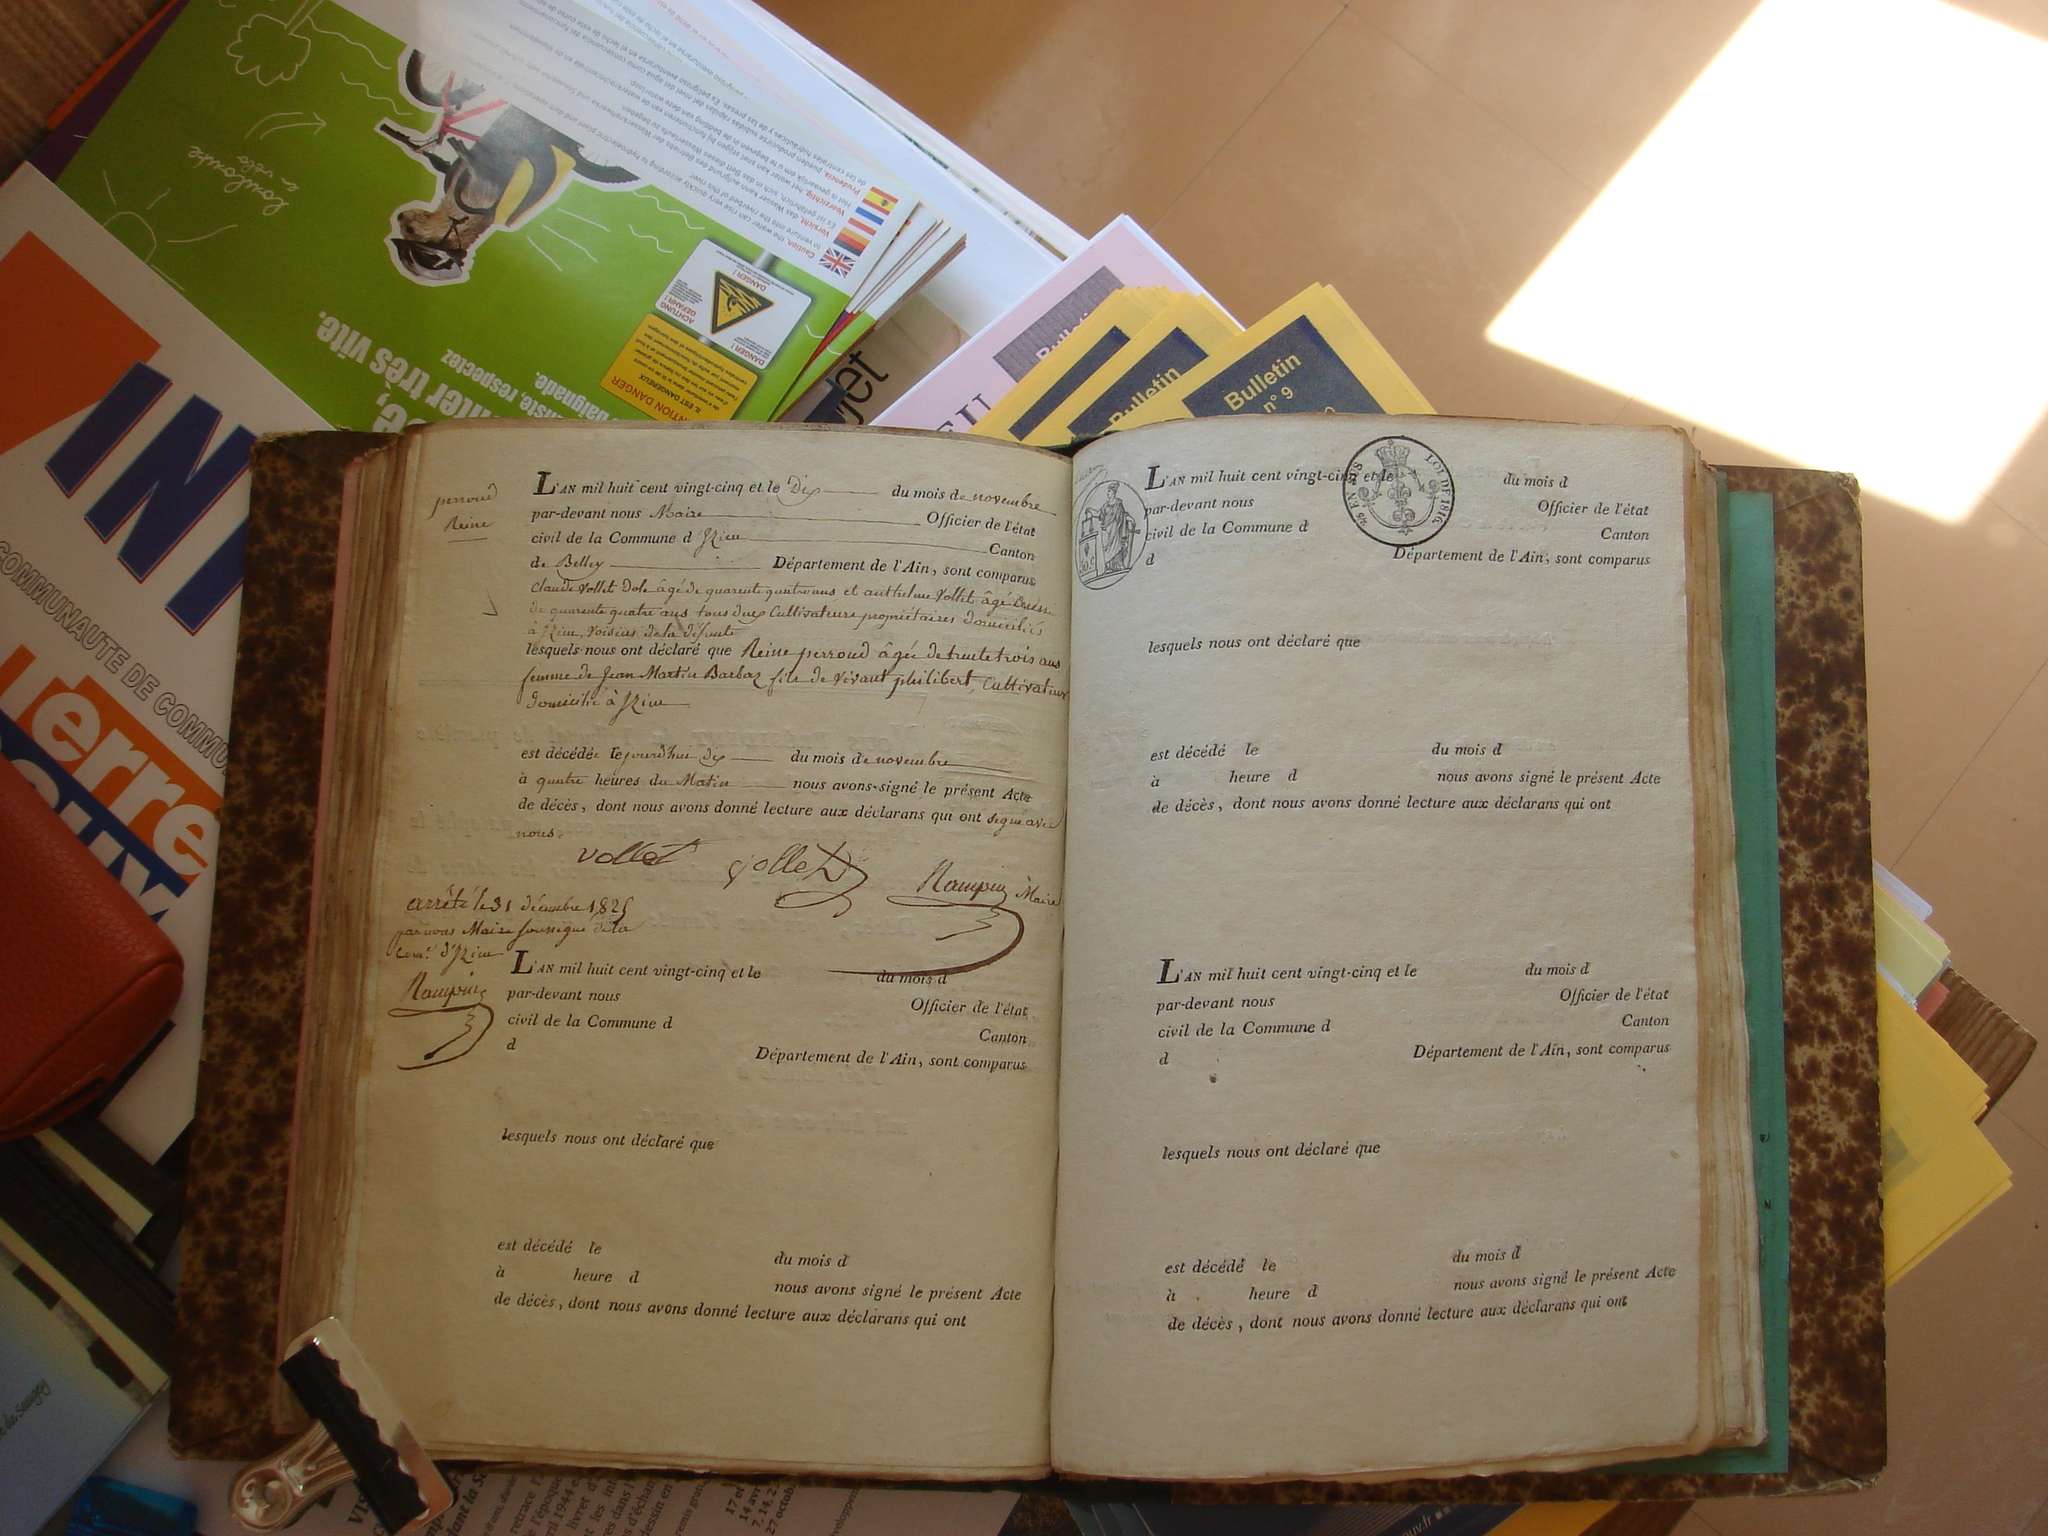 perroud
Reine
L'AN mil huit cent vingt-cinq et le Dix du mois de novembre
par-devant nous Maire Officier de l'état
civil de la Commune d'Izieu Canton
de Belley Département de l'Ain, sont comparus
Claude Vollet Dole âgé de quarente quatre ans et anthelme Vollet âgé
de quarente quatre ans tous deux Cultivateurs propriétaires domiciliés
à Izieu, voisins de la défunte
lesquels nous ont déclaré que Reine perroud âgée de trente trois ans
femme de Jean Martin Barbaz fils de vivant philibert, Cultivateur
domicilié à Izieu
est décédée le jourd'hui dix du mois de novembre
à quatre heures du Matin nous avons signé le présent Acte
de décès, dont nous avons donné lecture aux déclarans qui ont signé avec
nous.
Vollet Vollet Rampin Maire
arrêté le 31 décembre 1825
par nous Maire soussigné de la
Com.e d'Izieu
Rampin
L'AN mil huit cent vingt-cinq et le du mois d
par-devant nous Officier de l'état
civil de la Commune d Canton
d Département de l'Ain, sont comparus
lesquels nous ont déclaré que
est décédé le du mois d
à heure d nous avons signé le présent Acte
de décès, dont nous avons donné lecture aux déclarans qui ont
L'AN mil huit cent vingt-cinq et le du mois d
par-devant nous Officier de l'état
civil de la Commune d Canton
d Département de l'Ain, sont comparus
LOI DE 1816
lesquels nous ont déclaré que
est décédé le du mois d
à heure d nous avons signé le présent Acte
de décès, dont nous avons donné lecture aux déclarans qui ont
L'AN mil huit cent vingt-cinq et le du mois d
par-devant nous Officier de l'état
civil de la Commune d Canton
d Département de l'Ain, sont comparus
lesquels nous ont déclaré que
est décédé le du mois d
à heure d nous avons signé le présent Acte
de décès, dont nous avons donné lecture aux déclarans qui ont
Bulletin
n° 9
Bulletin
COMMUNAUTE DE COMMU
nter très vite.
DANGER !
ACHTUNG
GEFAHR !